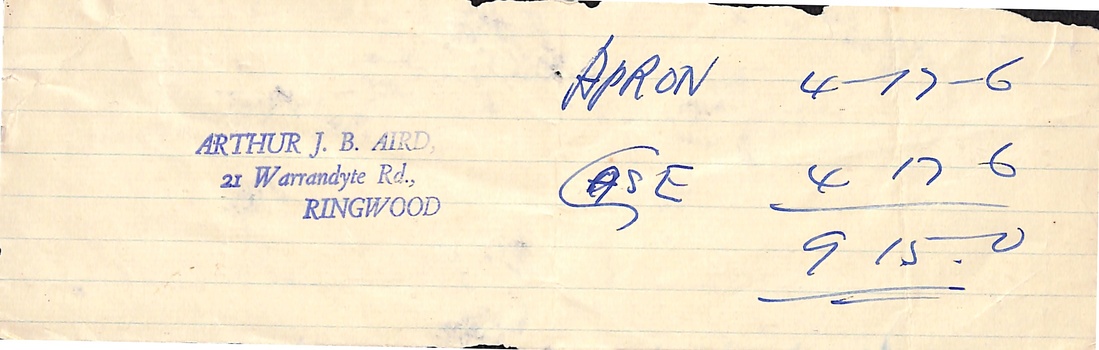 APRON 4-17-6
ARTHUR J. B. AIRD,
21 Warrandyte Rd.,
RINGWOOD
CASE 4 17 6
9 15.-0